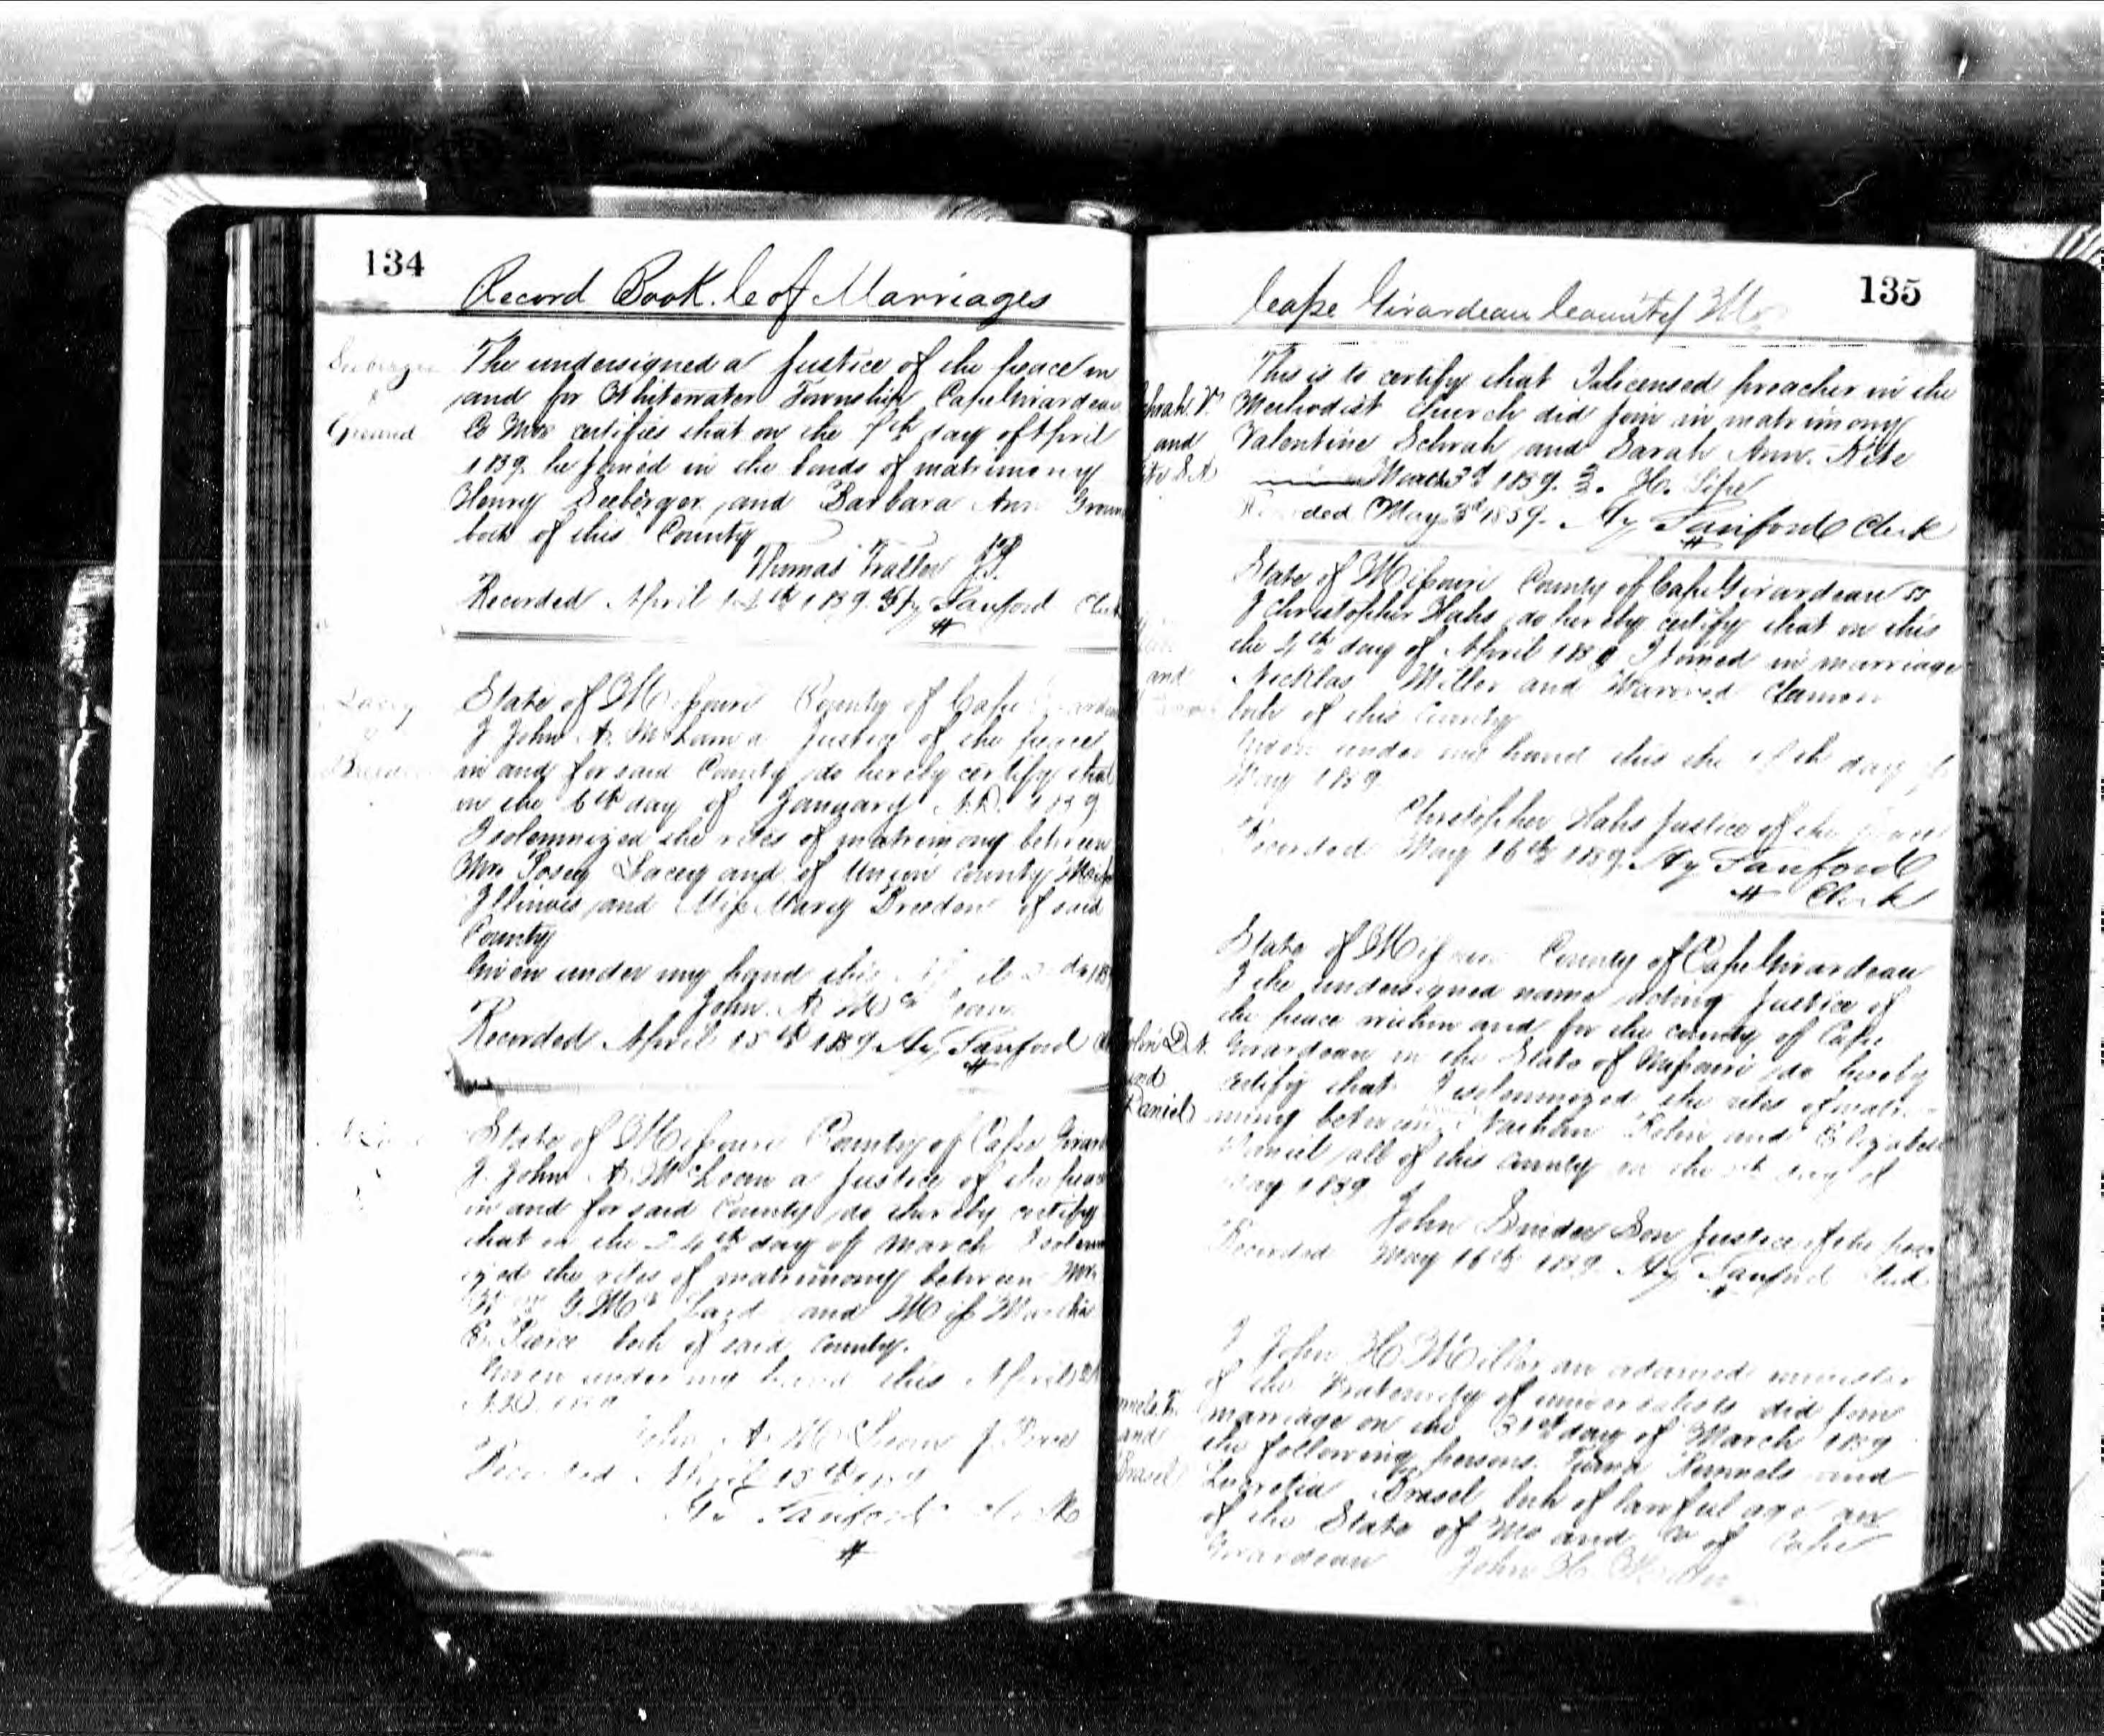 134
Record Book C of Marriages
Seeberger
&
Ground
The undersigned a Justice of the peace in
and for Whitewater Township Cape Girardeau
Co Mo certifies that on the 7th day of April
1859 he joined in the bonds of matrimony
Henry Seeberger and Barbara Ann Groun
both of this County
Thomas JP
Recorded April 14th 1859 Hy Sanford Clerk
Lacey
State of Missouri County of Cape Girardeau
I John A. McLean a Justice of the peace
in and for said County do hereby certify that
on the 6th day of January A.D. 1859
I solemnized the rites of matrimony between
Mr Posey Lacey and of Union County
Illinois and Miss Mary Breeden of said
County
Given under my hand this
John A. McLean
Recorded April 15th 1859 Hy Sanford
State of Missouri County of Cape Girard
I John A. McLean a Justice of the peace
in and for said County do thereby certify
that on the 24th day of March I solemn
ized the rites of matrimony between Mr
G. and Miss Martha
E. Pierce both of said County.
Given under my hand this April
A.D. 1859
John A. McLean J Peace
Recorded April 15th 1859
Hy Sanford Clerk
135
Cape Girardeau County Mo
Schrah V.
and
This is to certify that I a licensed preacher in the
Methodist Church did join in matrimony
Valentine Schrah and Sarah Ann Kite
March 3d 1859. H.
Recorded May 3d 1859. Hy Sanford Clerk
and
State of Missouri County of Cape Girardeau SS
I Christopher Hahs do hereby certify that on this
the 4th day of April 1859 I joined in marriage
Nicklas Miller and
both of this County
Given under my hand this the day of
May 1859
Christopher Hahs Justice of the Peace
Recorded May 16th 1859 Hy Sanford
Clerk
and
Daniel
State of Missouri County of Cape Girardeau
I the undersigned name acting Justice of
the peace within and for the county of Cape
Girardeau in the State of Missouri do hereby
certify that I solemnized the rites of matri-
mony between and Elizabeth
Daniel all of this County on the day of
May 1859
John Snider Sen Justice of the peace
Recorded May 16th 1859. Hy Sanford Clerk
and
Brasel
I John H. Miller an ordained minister
of the Fraternity of universalists did join
marriage on the 31st day of March 1859
the following persons. Runnels and
Lucretia Brasel both of lawful age an
of the State of Mo and Co of Cape
Girardeau John H. Miller